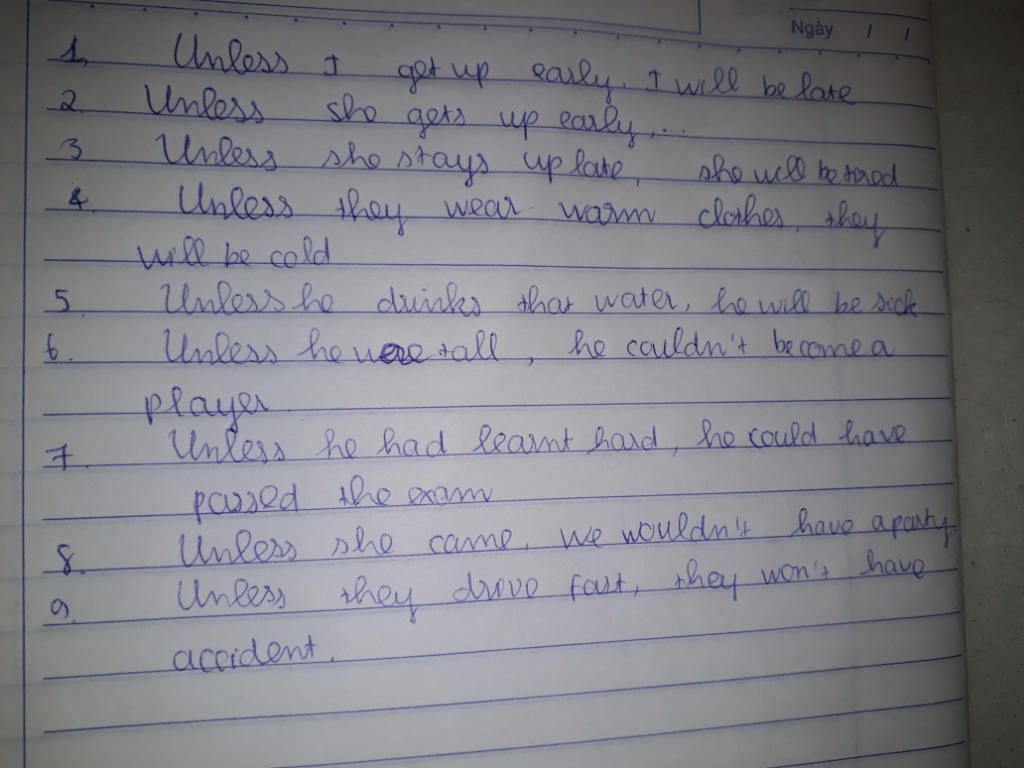 Ngày / /
1. Unless I get up early, I will be late
2. Unless she gets up early,...
3 Unless she stays up late, she will be tired
4. Unless they wear warm clothes, they
will be cold
5. Unless he drinks that water, he will be sick
6. Unless he were tall, he couldn't become a
player
7. Unless he had learnt hard, he could have
passed the exam
8. Unless she came, we wouldn't have a party
9. Unless they drive fast, they won't have
accident.